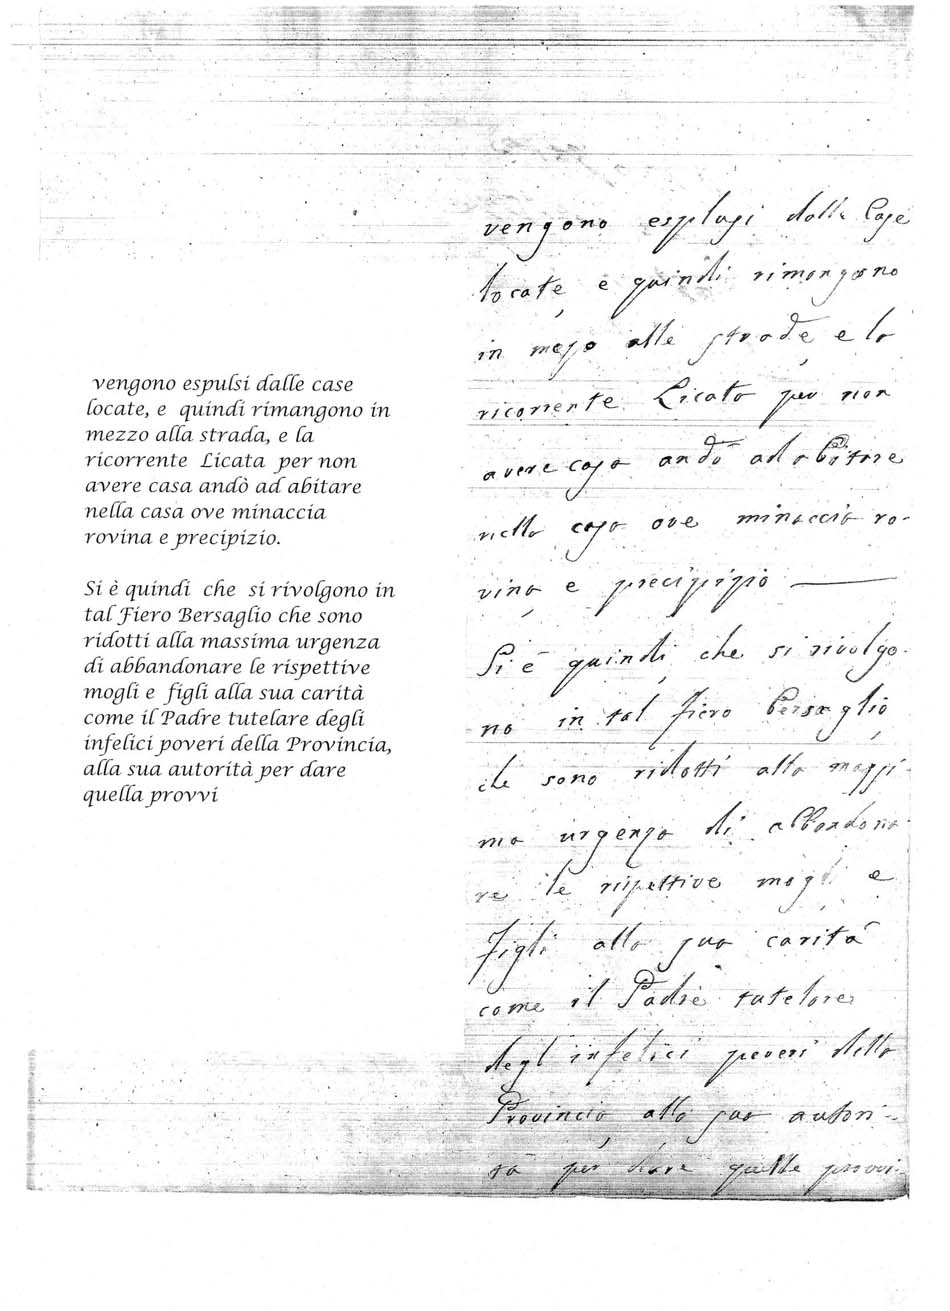 vengono espulsi dalle case
locate, e quindi rimangono in
mezzo alla strada, e la
ricorrente Licata per non
avere casa andò ad abitare
nella casa ove minaccia
rovina e precipizio.
Si è quindi che si rivolgono in
tal Fiero Bersaglio che sono
ridotti alla massima urgenza
di abbandonare le rispettive
mogli e figli alla sua carità
come il Padre tutelare degli
infelici poveri della Provincia,
alla sua autorità per dare
quella provvi
vengono espulsi dalle Case
locate, e quindi rimangono
in mezo alle strade, e la
ricorrente Licata per non
avere casa andò ad abitare
nella casa ove minaccia ro-
vina e precipizio
Si è quindi, che si rivolgo-
no in tal fiero Bersaglio,
che sono ridotti alla massi-
ma urgenza di abbandona-
re le rispettive mogli e
figli alla sua carità
come il Padre tutelare
degl'infelici poveri della
Provincia, alla sua autori-
tà per dare quelle provvi-